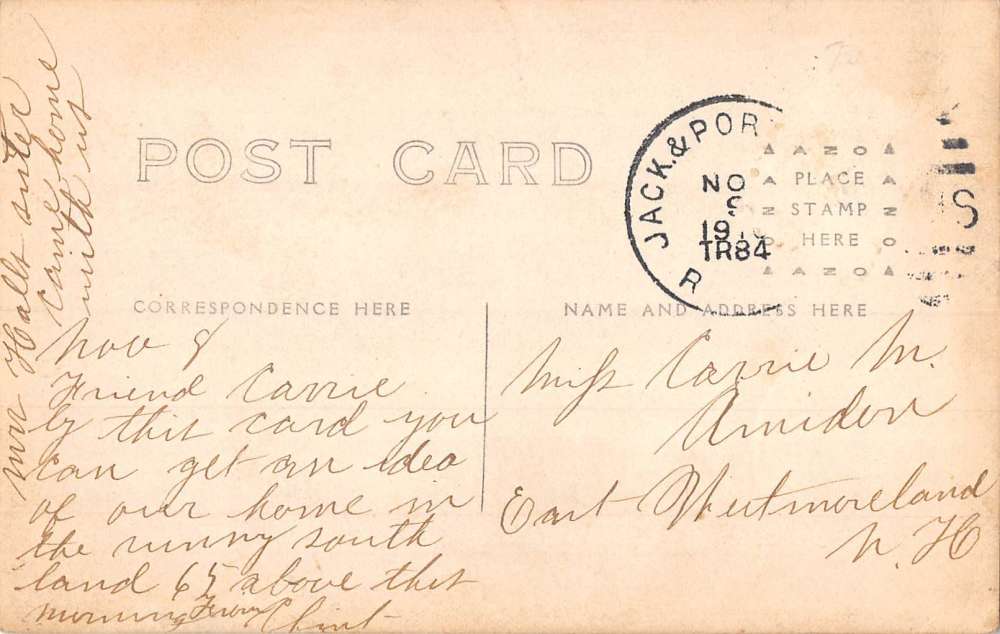 POST CARD
JACK. & POR
NO
9
191
TR84
R
AZO
PLACE
STAMP
HERE
AZO
S
CORRESPONDENCE HERE
NAME AND ADDRESS HERE
Nov 8
Friend Carrie
by this card you
can get an idea
of our home in
the sunny south
land 65 above this
morning From
Clint
Mrs Halls sister
came home
with us
Miss Carrie M.
Amidon
East Westmoreland
N. H